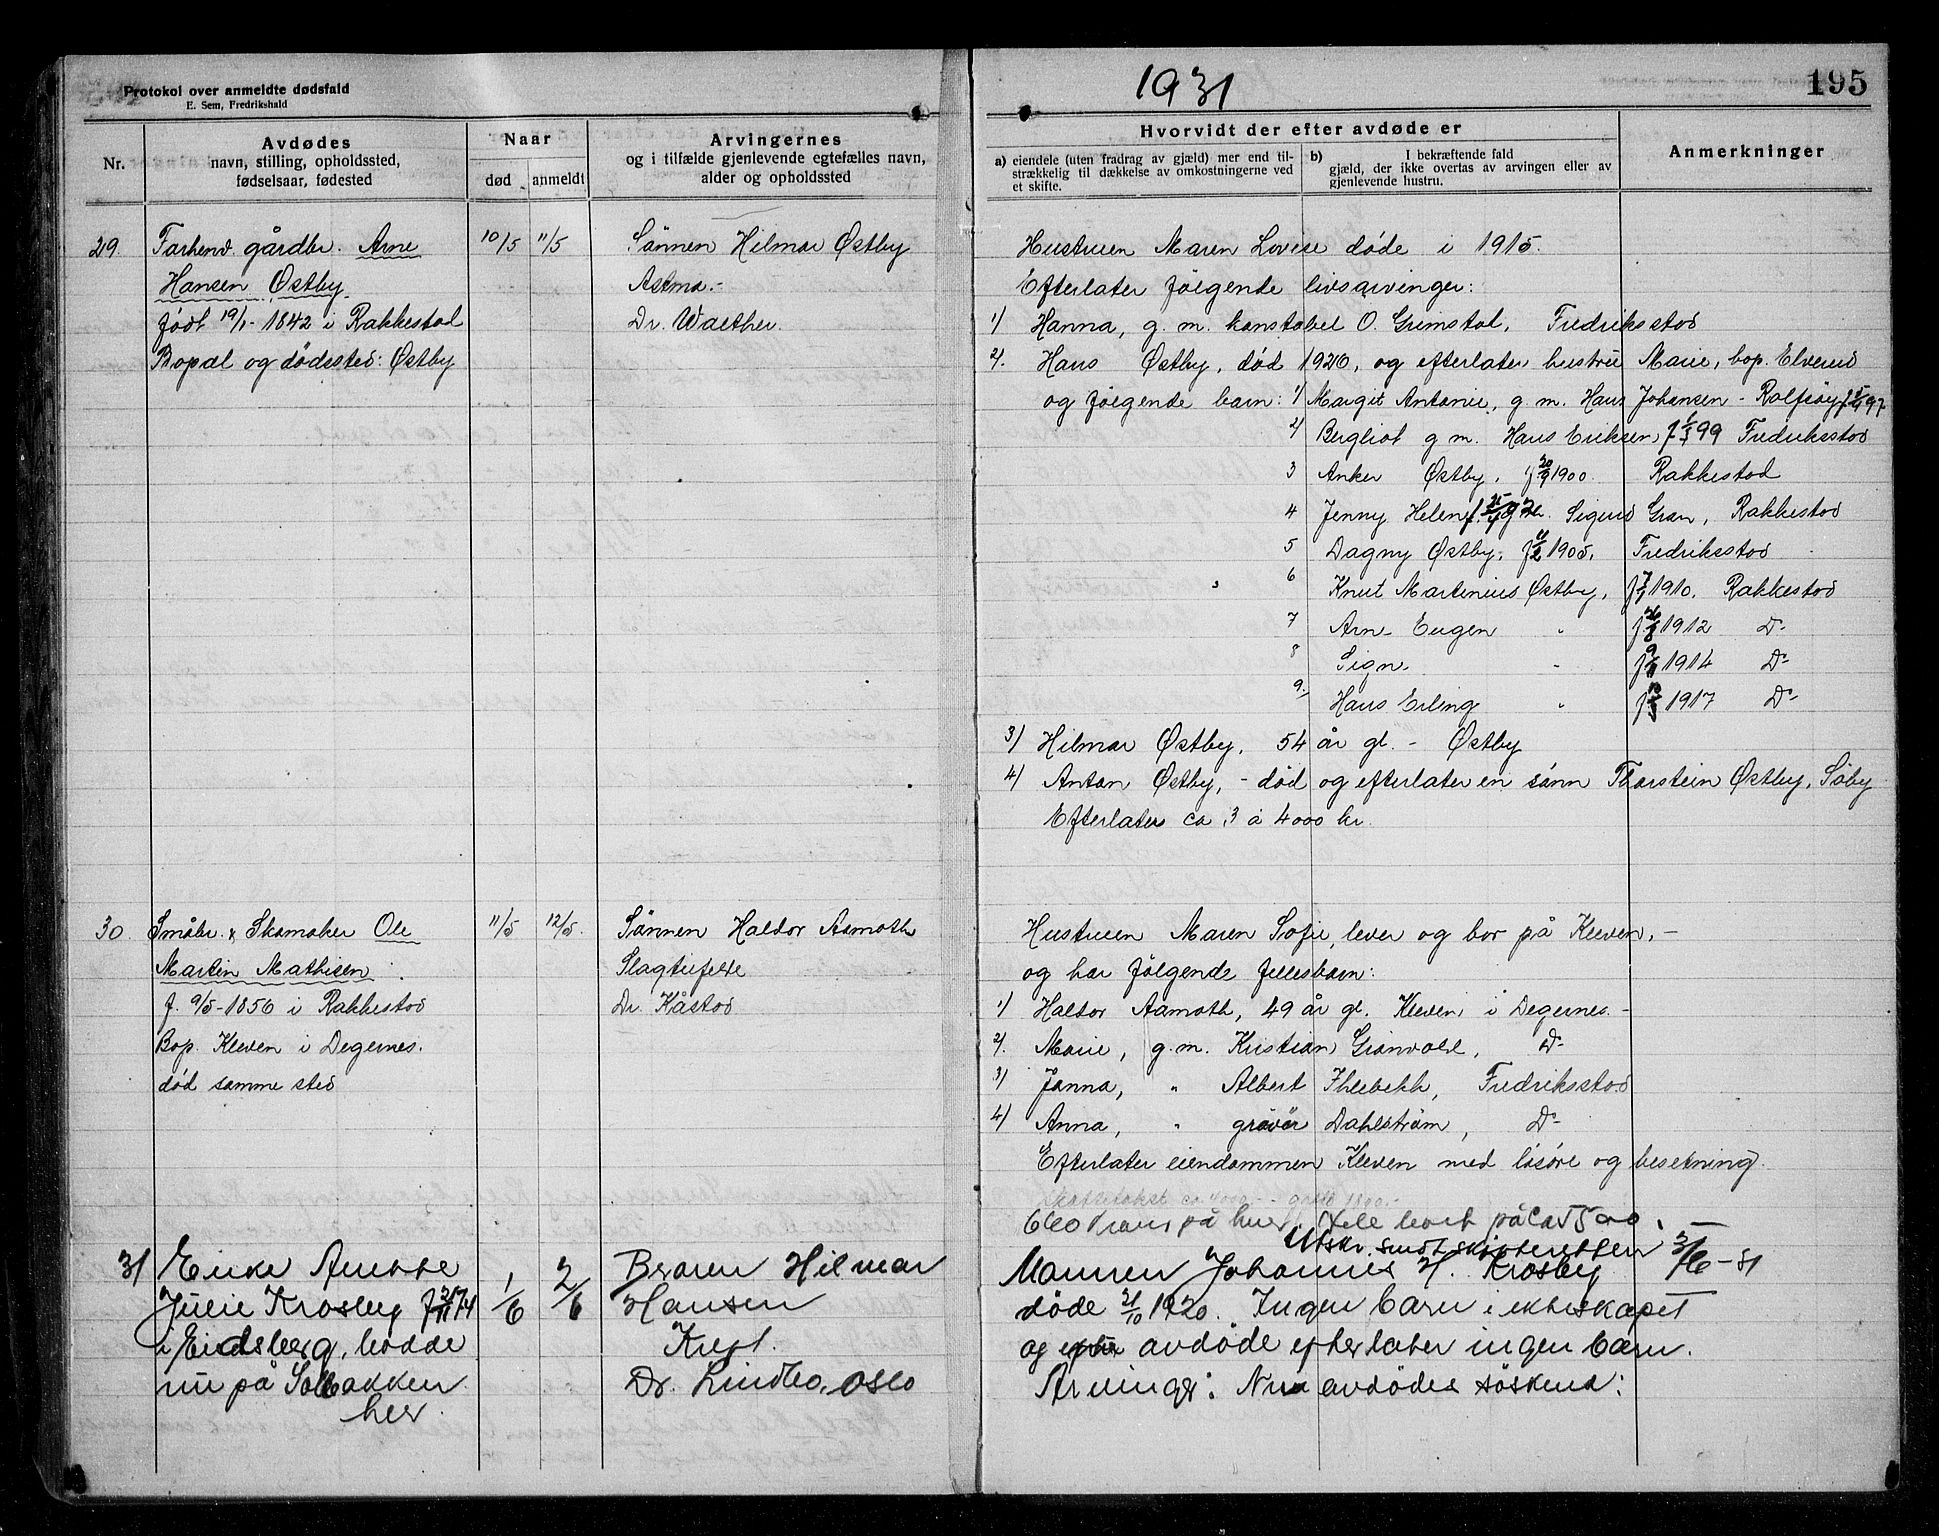 Protokol over anmeldte dødsfald
E. Sem, Fredrikshald
1931
195
Nr.
Avdødes
navn, stilling, opholdssted,
fødselsaar, fødested
Naar
død
anmeldt
Arvingernes
og i tilfælde gjenlevende egtefælles navn,
alder og opholdssted
Hvorvidt der efter avdøde er
a) eiendele (uten fradrag av gjæld) mer end til-
strækkelig til dækkelse av omkostningerne ved
et skifte.
b) I bekræftende fald
gjæld, der ikke overtas av arvingen eller av
gjenlevende hustru.
Anmerkninger
29. Forhenv. gårdbr. Arne
Hansen Østby
født 19/1-1842 i Rakkestad
Bopæl og dødssted: Østby
10/5 11/5
Sønnen Hilmar Østby
Astma.-
Dr. Walther
Hustruen Maren Lovise døde i 1915.
Efterlater følgende livsarvinger:
1) Hanna, g. m. konstabel O. Grimstad, Fredriksstad
2. Hans Østby, død 1920, og efterlater hustru Marie, bop. Elverud
og følgende barn: 1) Margit Antonie, g. m. Hans Johansen - Rolfsøy
2) Bergliot g m. Hans Eriksen, f 99 Fredriksstad
3 Anker Østby, 1900. Rakkestad
4 Jenny Helene Sigurd Gran, Rakkestad
5 Dagny Østby, 1905, Fredriksstad
6 Knut Martinius Østby, 1910. Rakkestad
7 Arne Eugen " 1912 Do
8 Signe " 1914 Do
9. Hans Erling " 1917 Do
3) Hilmar Østby, 54 år gl. - Østby
4) Anton Østby, - død og efterlater en sønn Thorstein Østby, Søby
Efterlater ca 3 à 4000 kr.
30. Småbr. & Skomaker Ole
Martin Mathisen
f. 9/5-1850 i Rakkestad
Bop. Kleven i Degernes.
død samme sted
11/5 12/5.
Sønnen Haldor Aamoth
Slagtilfelde
Dr. Kåstad
Hustruen Maren Sofie, lever og bor på Kleven, -
og har følgende fellesbarn:
1) Haldor Aamoth, 49 år gl. Kleven i Degernes. -
2. Marie, g. m. Kristian Grønvold, Do
3) Janna, " Albert Ihlebekk, Fredriksstad
4) Anna, " gravør Dahlstrøm, Do
Efterlater eiendommen Kleven med løsøre og besetning.
Skattetakst ca 4000.- - gjeld 1800.-
Utskr. sendt skifteretten 3/6-31
31 Enke Anette
Julie Krosby
i Eidsberg, bodde
nu på Solbakken
her.
1/6 2/6
Broren Hilmar
Hansen
Kreft.
Dr. Lindbo, Oslo
Mannen Johannes H. Krosby
døde 21/10 1920. Ingen barn i ekteskapet
og avdøde efterlater ingen barn.
Arvinger: avdødes søskend: